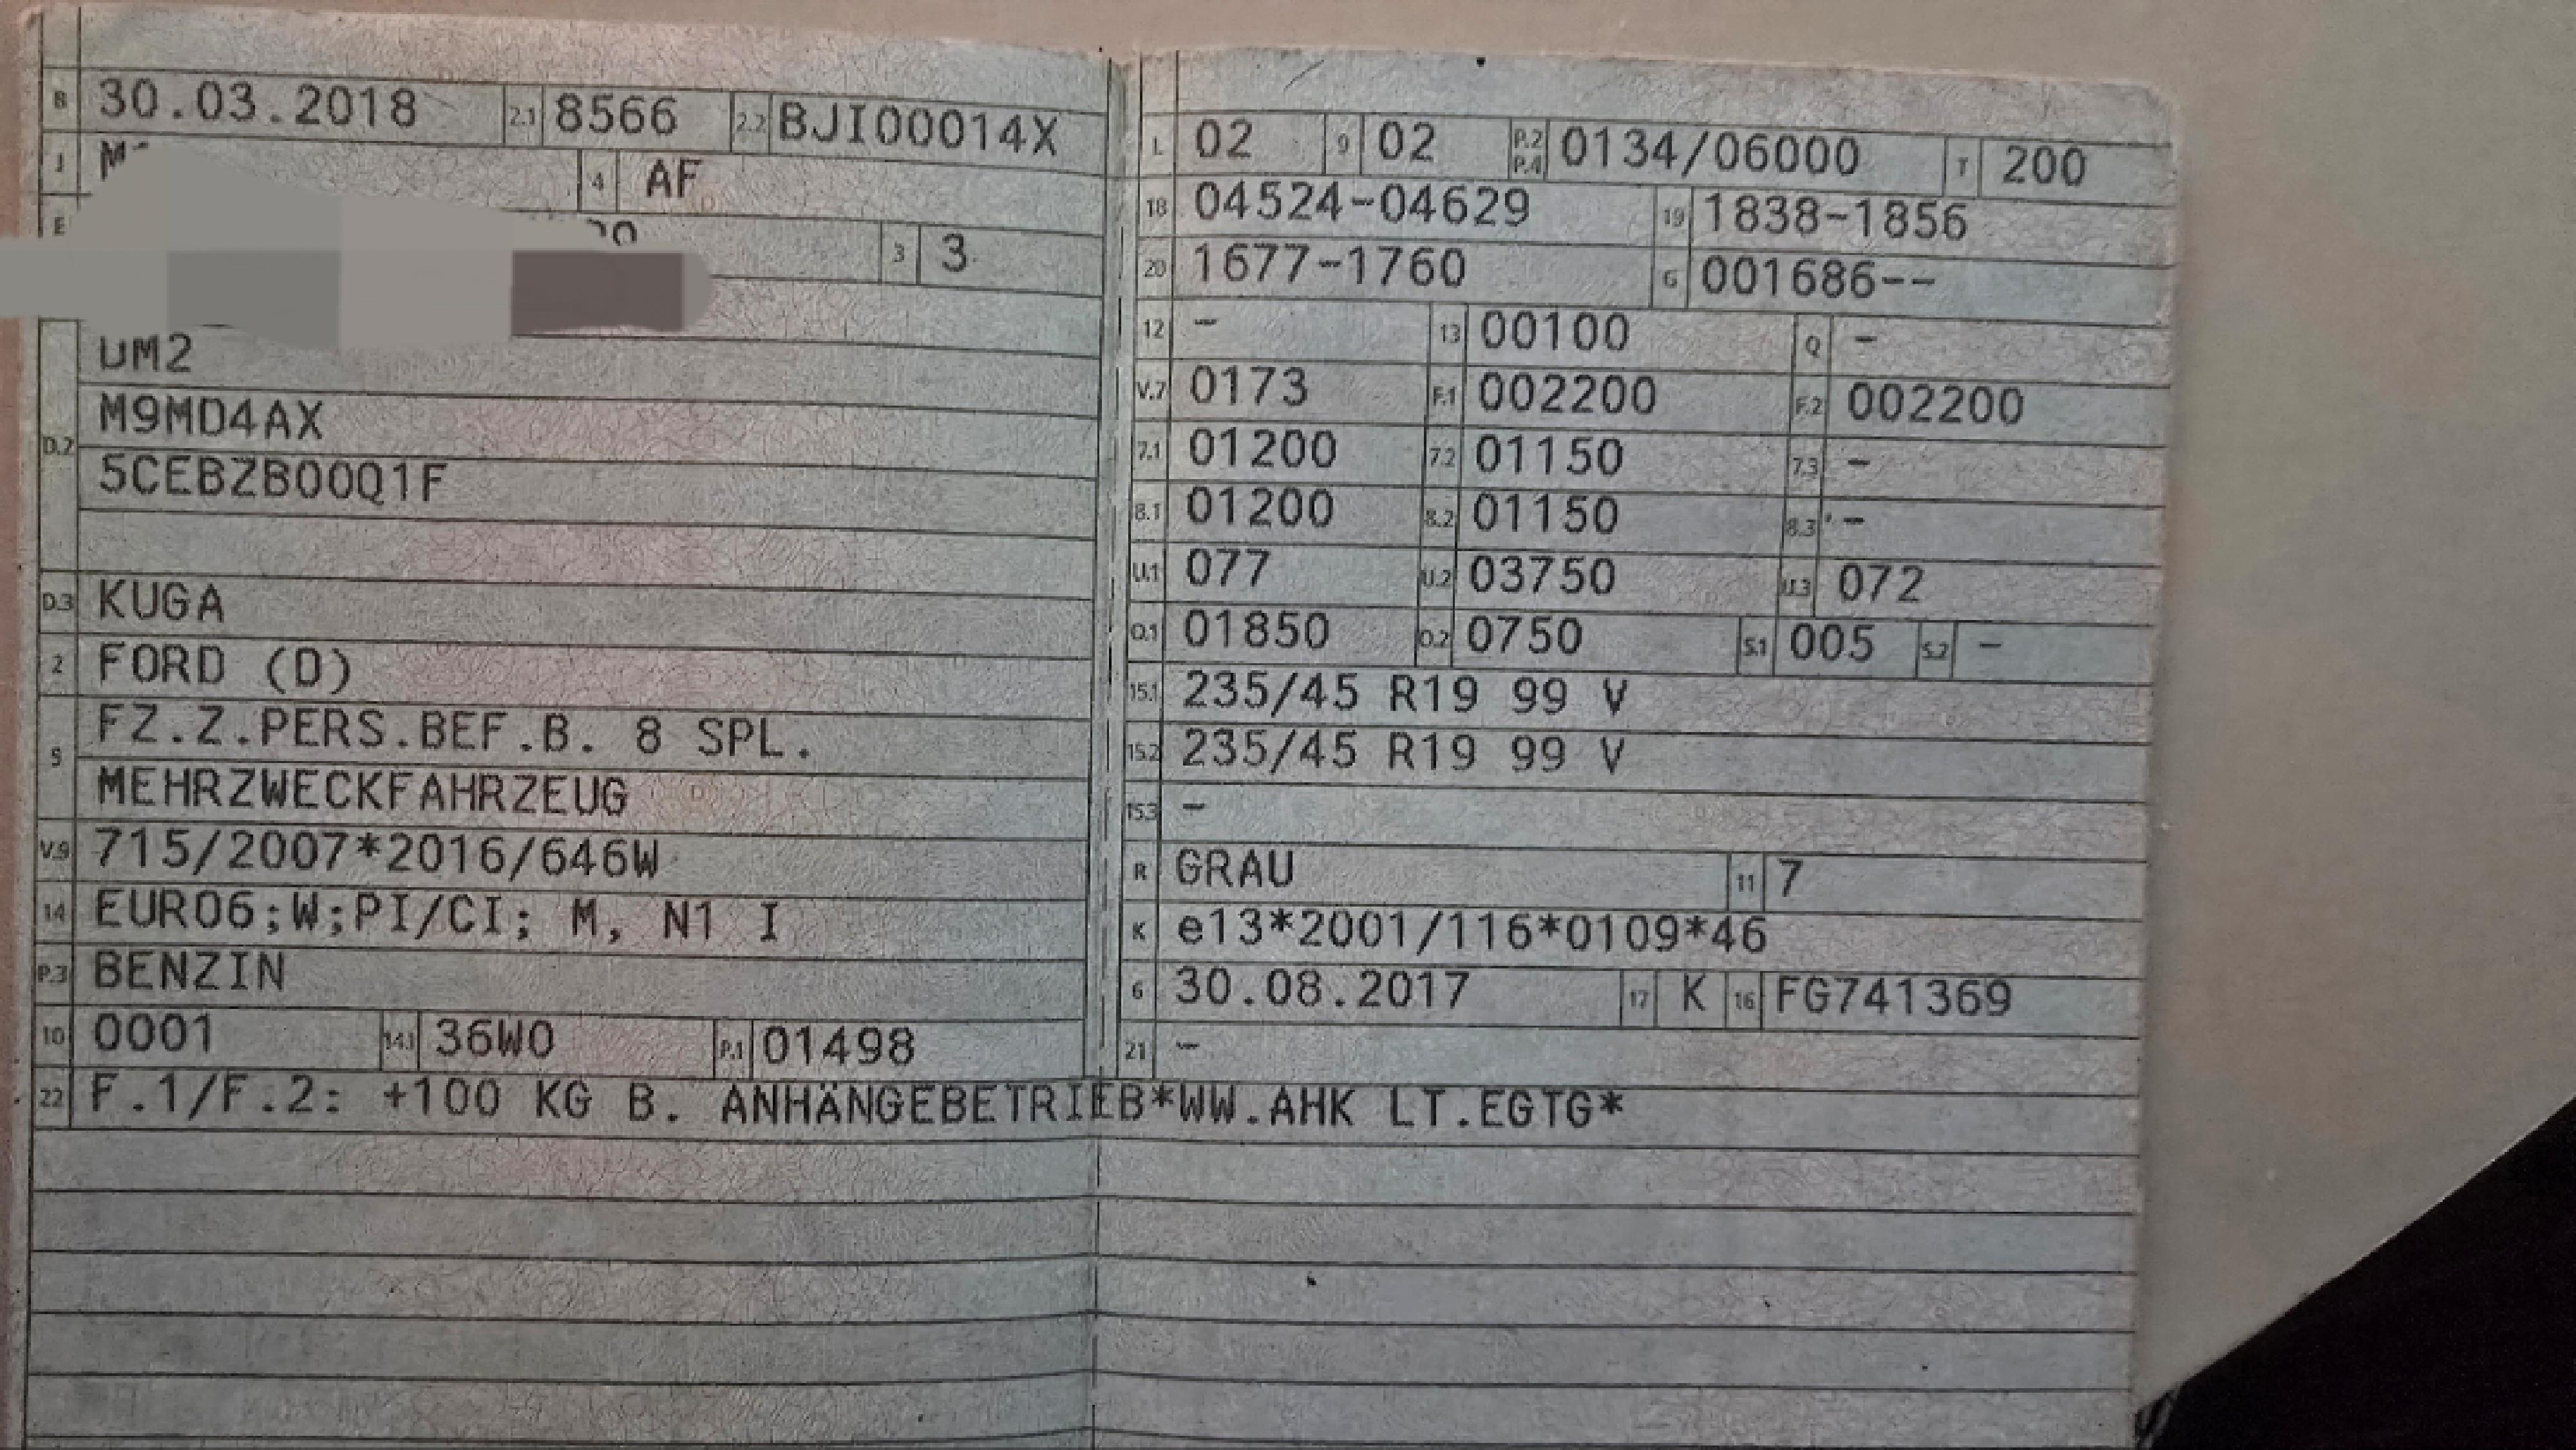 B 30.03.2018 2.1 8566 2.2 BJI00014X
J 4 AF
E 3 3
DM2
M9MD4AX
D.2 5CEBZB00Q1F
D.3 KUGA
2 FORD (D)
FZ.Z.PERS.BEF.B. 8 SPL.
5 MEHRZWECKFAHRZEUG
V.9 715/2007*2016/646W
14 EURO6;W;PI/CI; M, N1 I
P.3 BENZIN
10 0001 14.1 36W0 P.1 01498
L 02 9 02 P.2 P.4 0134/06000 T 200
18 04524-04629 19 1838-1856
20 1677-1760 G 001686--
12 - 13 00100 Q -
V.7 0173 F.1 002200 F.2 002200
7.1 01200 7.2 01150 7.3 -
8.1 01200 8.2 01150 8.3 -
U.1 077 U.2 03750 U.3 072
O.1 01850 O.2 0750 S.1 005 S.2 -
15.1 235/45 R19 99 V
15.2 235/45 R19 99 V
15.3 -
R GRAU 11 7
K e13*2001/116*0109*46
6 30.08.2017 17 K 16 FG741369
21 -
22 F.1/F.2: +100 KG B. ANHÄNGEBETRIEB*WW.AHK LT.EGTG*